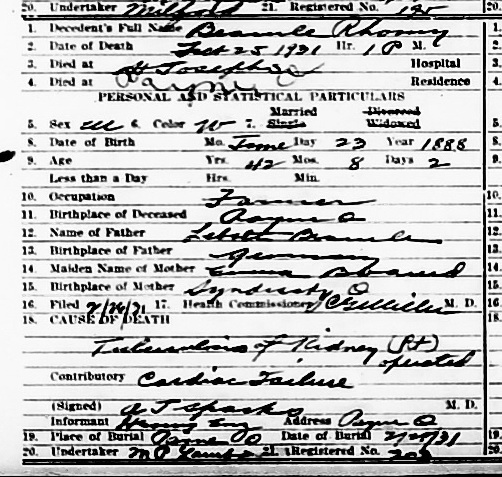 20. Undertaker Milford 21. Registered No. 120
1. Decedent's Full Name Beamle
2. Date of Death Feb 25 1931 Hr. 1 P M.
3. Died at St Josephs Hospital
4. Died at Payne Residence
PERSONAL AND STATISTICAL PARTICULARS
Married Divorced
5. Sex M 6. Color W 7. Single Widowed
8. Date of Birth Mo. June Day 23 Year 1888
9. Age Yrs. 42 Mos. 8 Days 2
Less than a Day Hrs. Min.
10. Occupation Farmer
11. Birthplace of Deceased Payne O
12. Name of Father Beamle
13. Birthplace of Father Germany
14. Maiden Name of Mother Emma
15. Birthplace of Mother O
16. Filed 2/26/31 17. Health Commissioner M. D.
18. CAUSE OF DEATH
Tuberculosis of Kidney (Rt)
operated
Contributory Cardiac Failure
(Signed) A J Sparks M. D.
Informant Address Payne O
19. Place of Burial Payne O Date of Burial 2/28/31
20. Undertaker 21. Registered No.